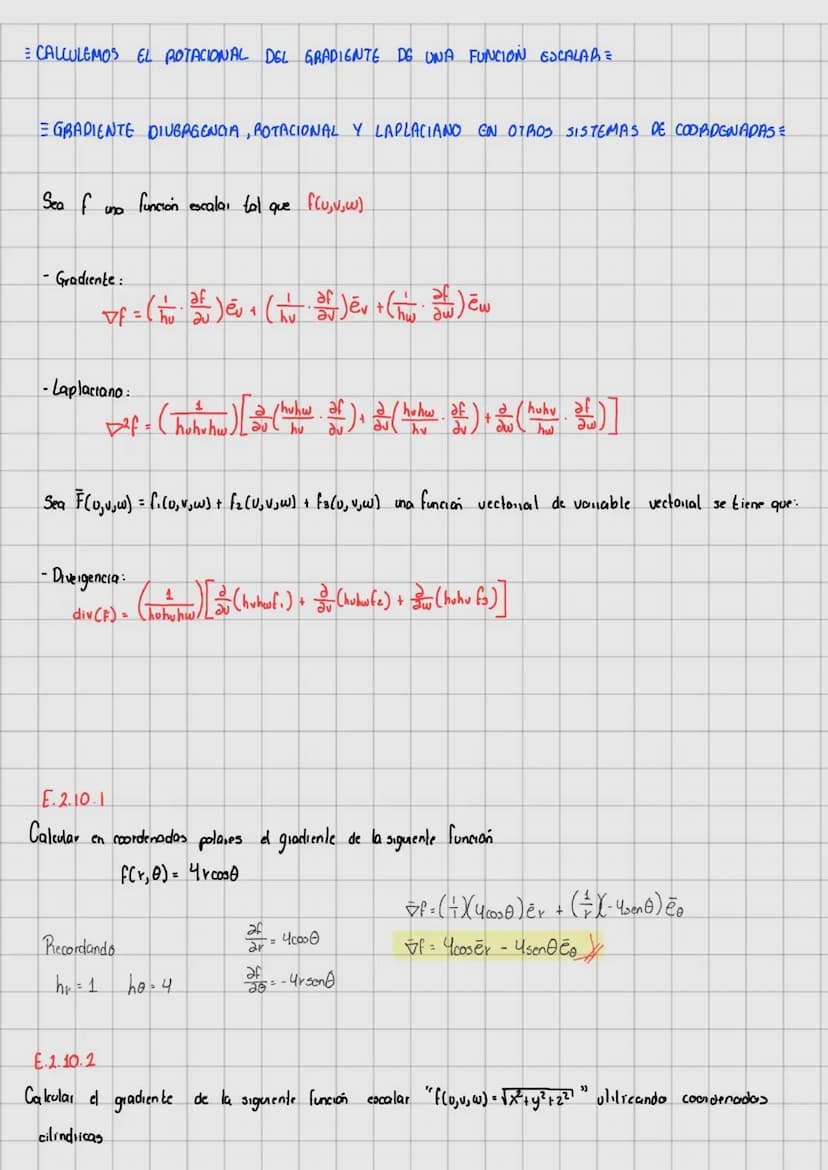 ≡ CALCULEMOS EL ROTACIONAL DEL GRADIENTE DE UNA FUNCIÓN ESCALAR ≡
≡ GRADIENTE DIVERGENCIA, ROTACIONAL Y LAPLACIANO EN OTROS SISTEMAS DE COORDENADAS ≡
Sea f una función escalar tal que f(u,v,w)
- Gradiente:
∇f = (1/hu · ∂f/∂u) ēu + (1/hv · ∂f/∂v) ēv + (1/hw · ∂f/∂w) ēw
- Laplaciano:
∇²f = (1/huhvhw) [∂/∂u (hvhw/hu · ∂f/∂u) + ∂/∂v (huhw/hv · ∂f/∂v) + ∂/∂w (huhv/hw · ∂f/∂w)]
Sea F̄(u,v,w) = f₁(u,v,w) + f₂(u,v,w) + f₃(u,v,w) una función vectorial de variable vectorial se tiene que:
- Divergencia:
div(F) = (1/huhvhw) [∂/∂u (hvhwf₁) + ∂/∂v (huhwf₂) + ∂/∂w (huhv f₃)]
E.2.10.1
Calcular en coordenadas polares el gradiente de la siguiente función
f(r,θ) = 4rcosθ
Recordando
hr = 1 hθ = 4
∂f/∂r = 4cosθ
∂f/∂θ = -4rsenθ
∇̄f = (1/1)(4cosθ)ēr + (1/r)(-4senθ)ēθ
∇̄f = 4cosēr - 4senθēθ
E.2.10.2
Calcular el gradiente de la siguiente función escalar "f(u,v,w) = √x²+y²+z²" utilizando coordenadas
cilíndricas